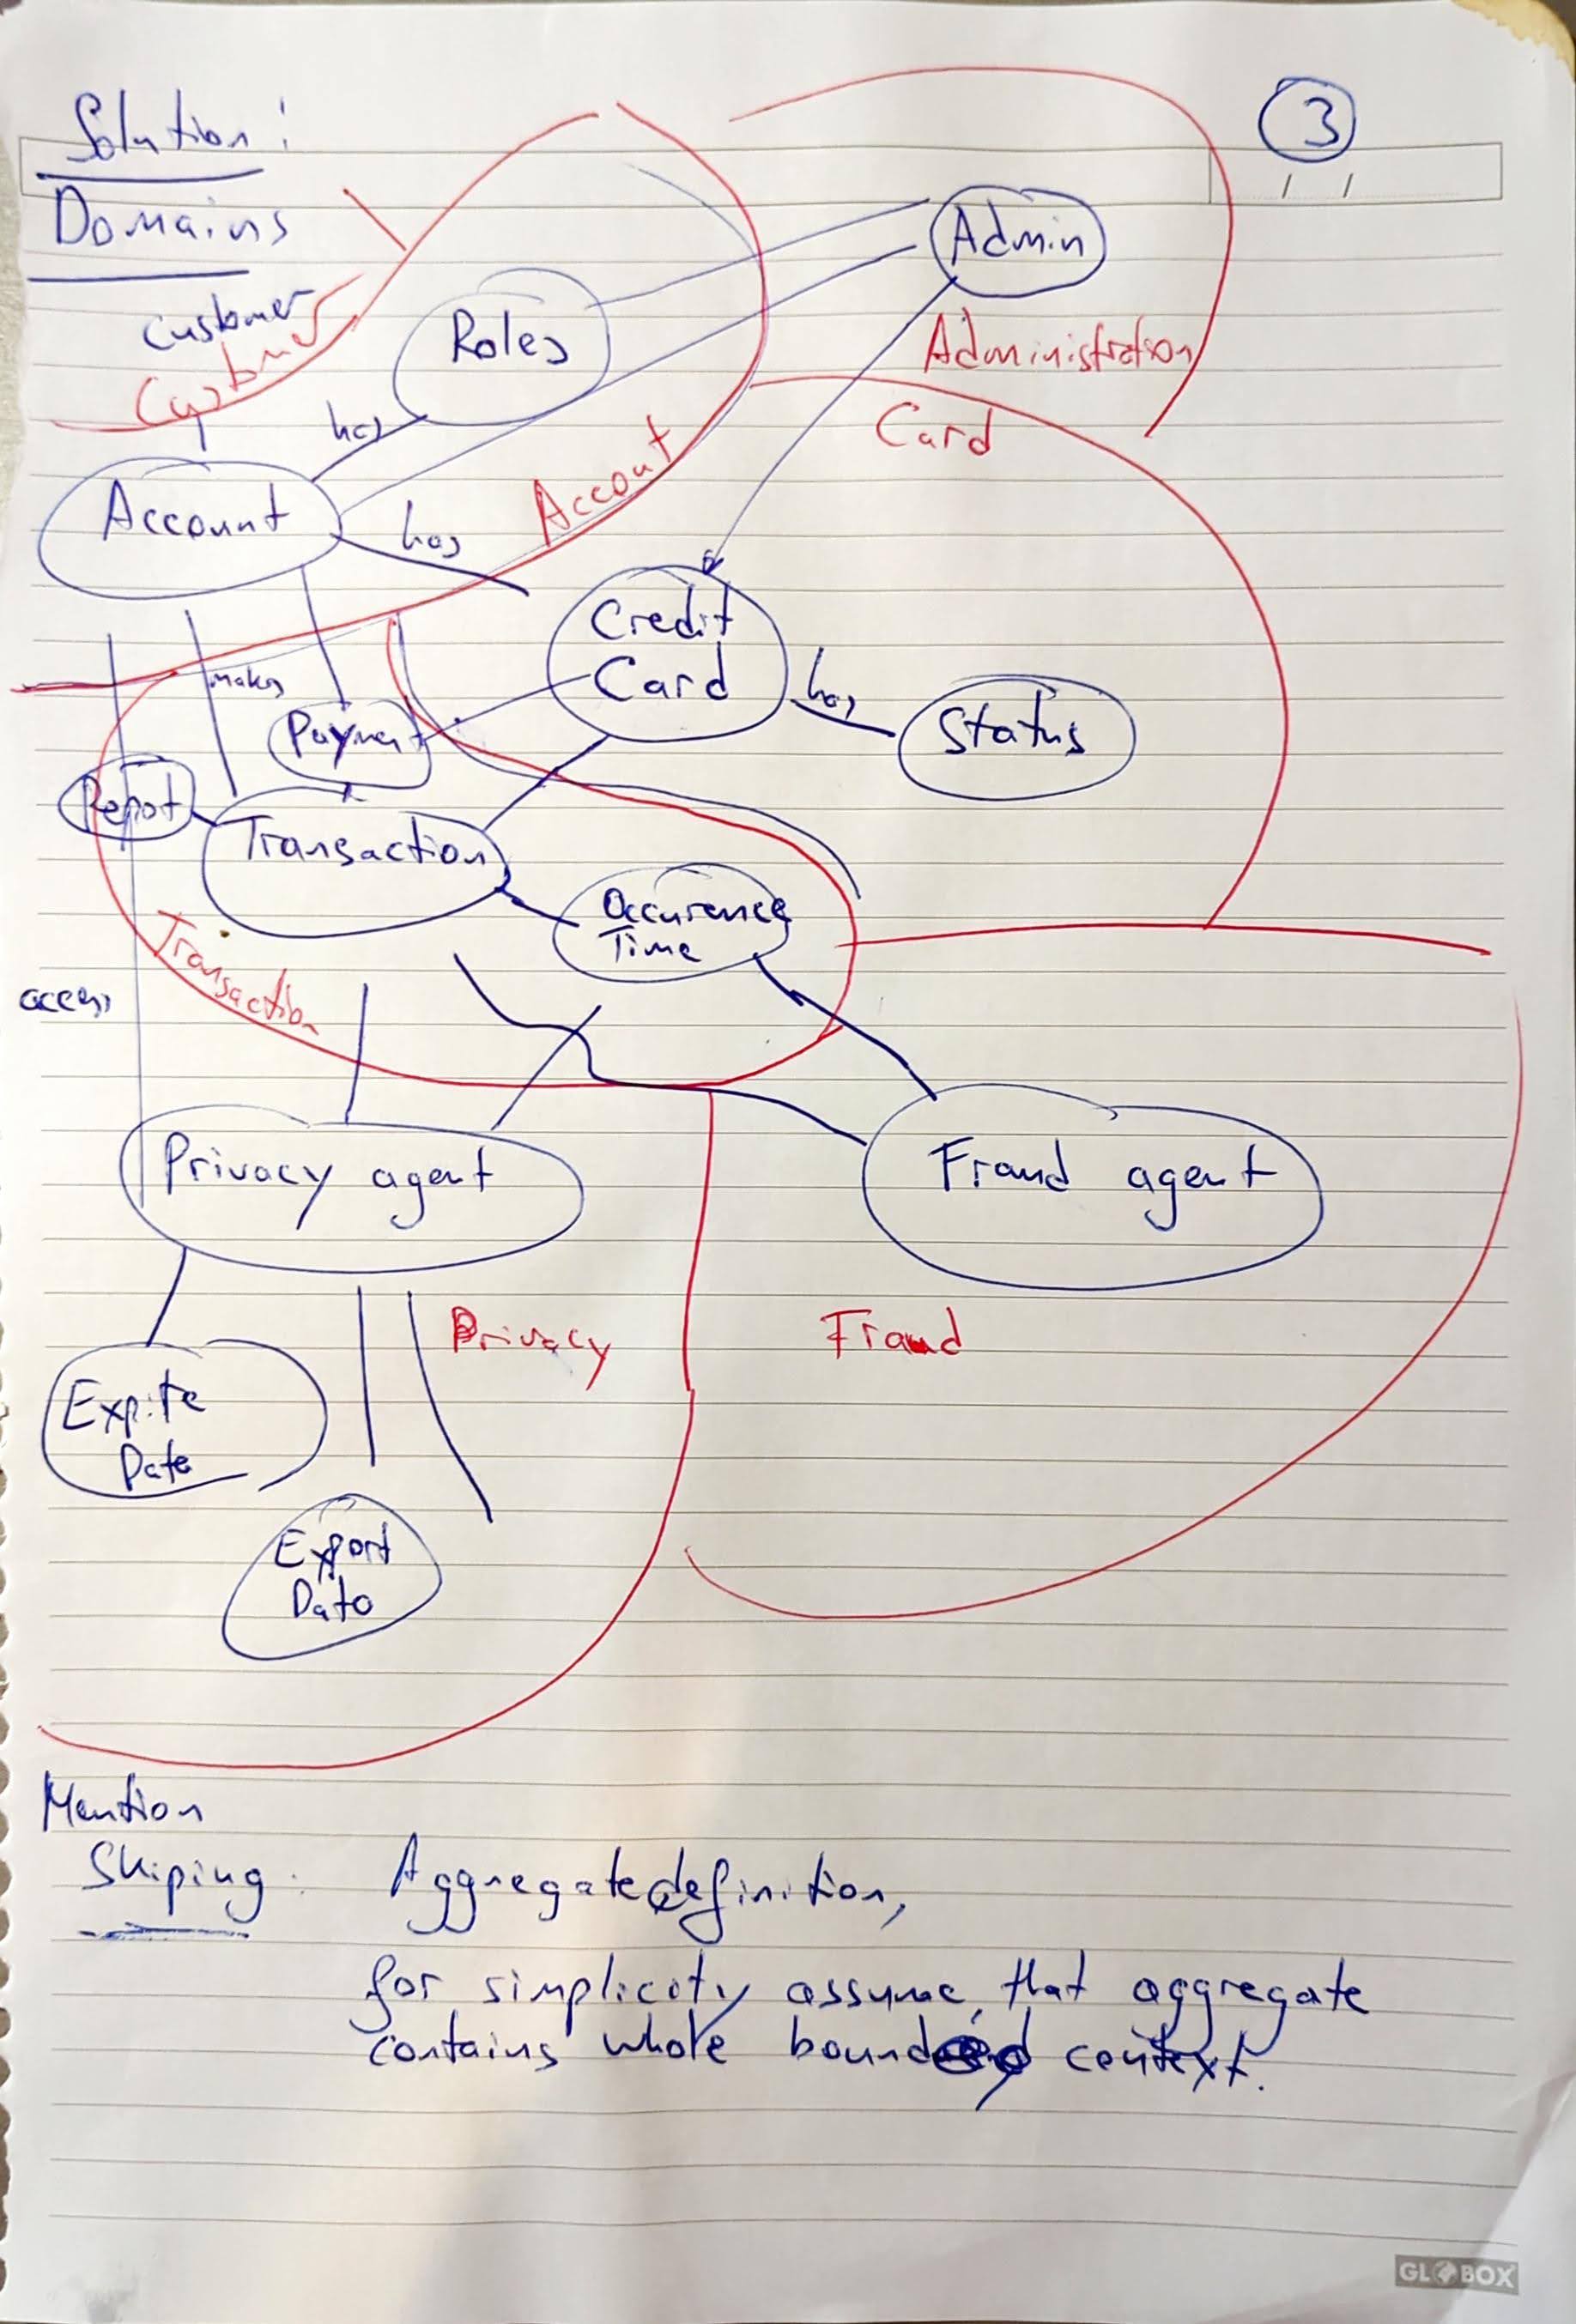 Solution:
3
/ /
Domains
Admin
customer
Customer
Roles
Administration
Card
has
Account
Account
has
Credit
Card
has
makes
Payment
Status
Repot
Transaction
Occurence
Time
Transaction
access
Privacy agent
Fraud agent
Privacy
Fraud
Expire
Date
Export
Data
Mention
Skiping: Aggregate definition,
for simplicity assume, that aggregate
contains whole bounded context.
GLOBOX